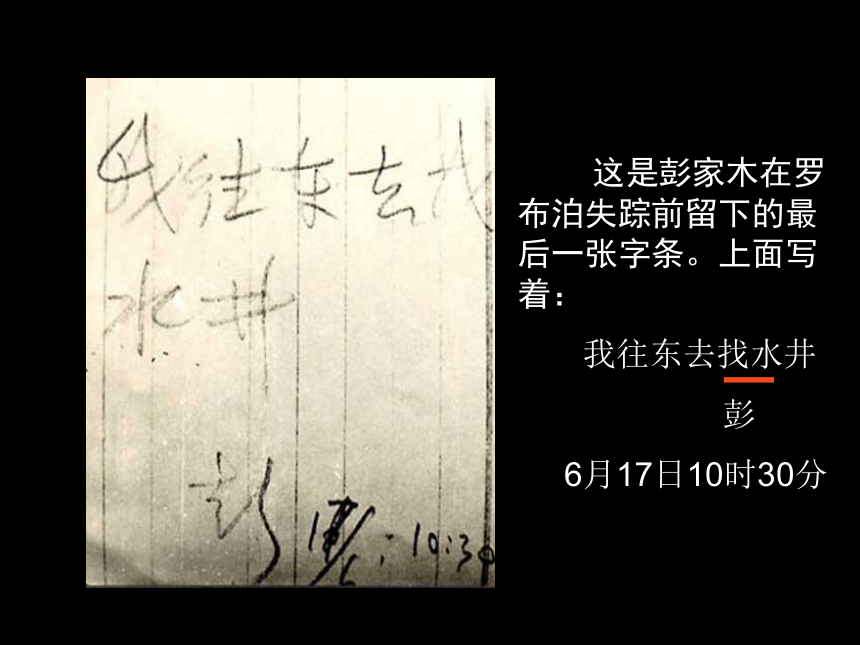 我往东去找
水井
彭
10:30
这是彭家木在罗
布泊失踪前留下的最
后一张字条。上面写
着：
我往东去找水井
彭
6月17日10时30分